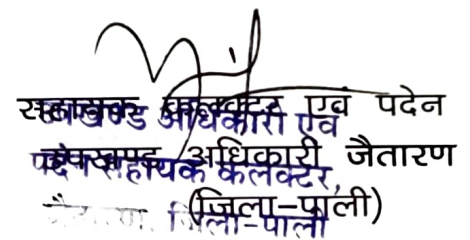 सहायक कलक्टर एवं पदेन
उपखण्ड अधिकारी एवं
उपखण्ड अधिकारी जैतारण
पदेन सहायक कलेक्टर,
(जिला-पाली)
जिला-पाली